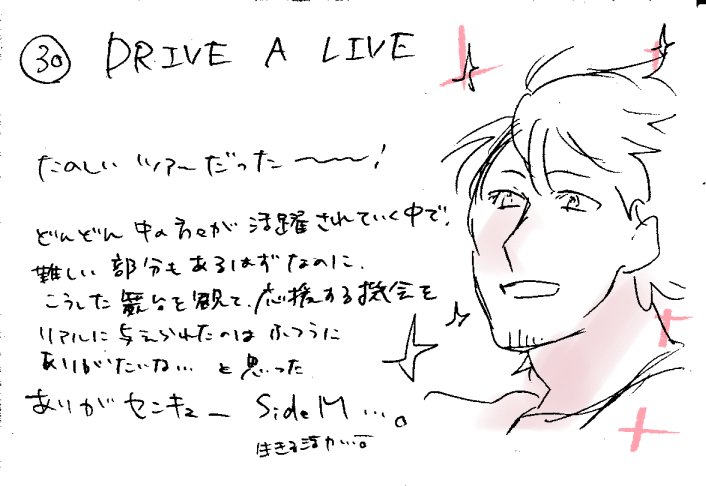 30 DRIVE A LIVE
たのしいツアーだった〜〜!
どんどん中の方々が活躍されていく中で、
難しい部分もあるはずなのに、
こうした舞台を観て、応援する機会を
リアルに与えられたのはふつうに
ありがたいな… と思った
ありがセンキュー SideM…。
生きる活力…